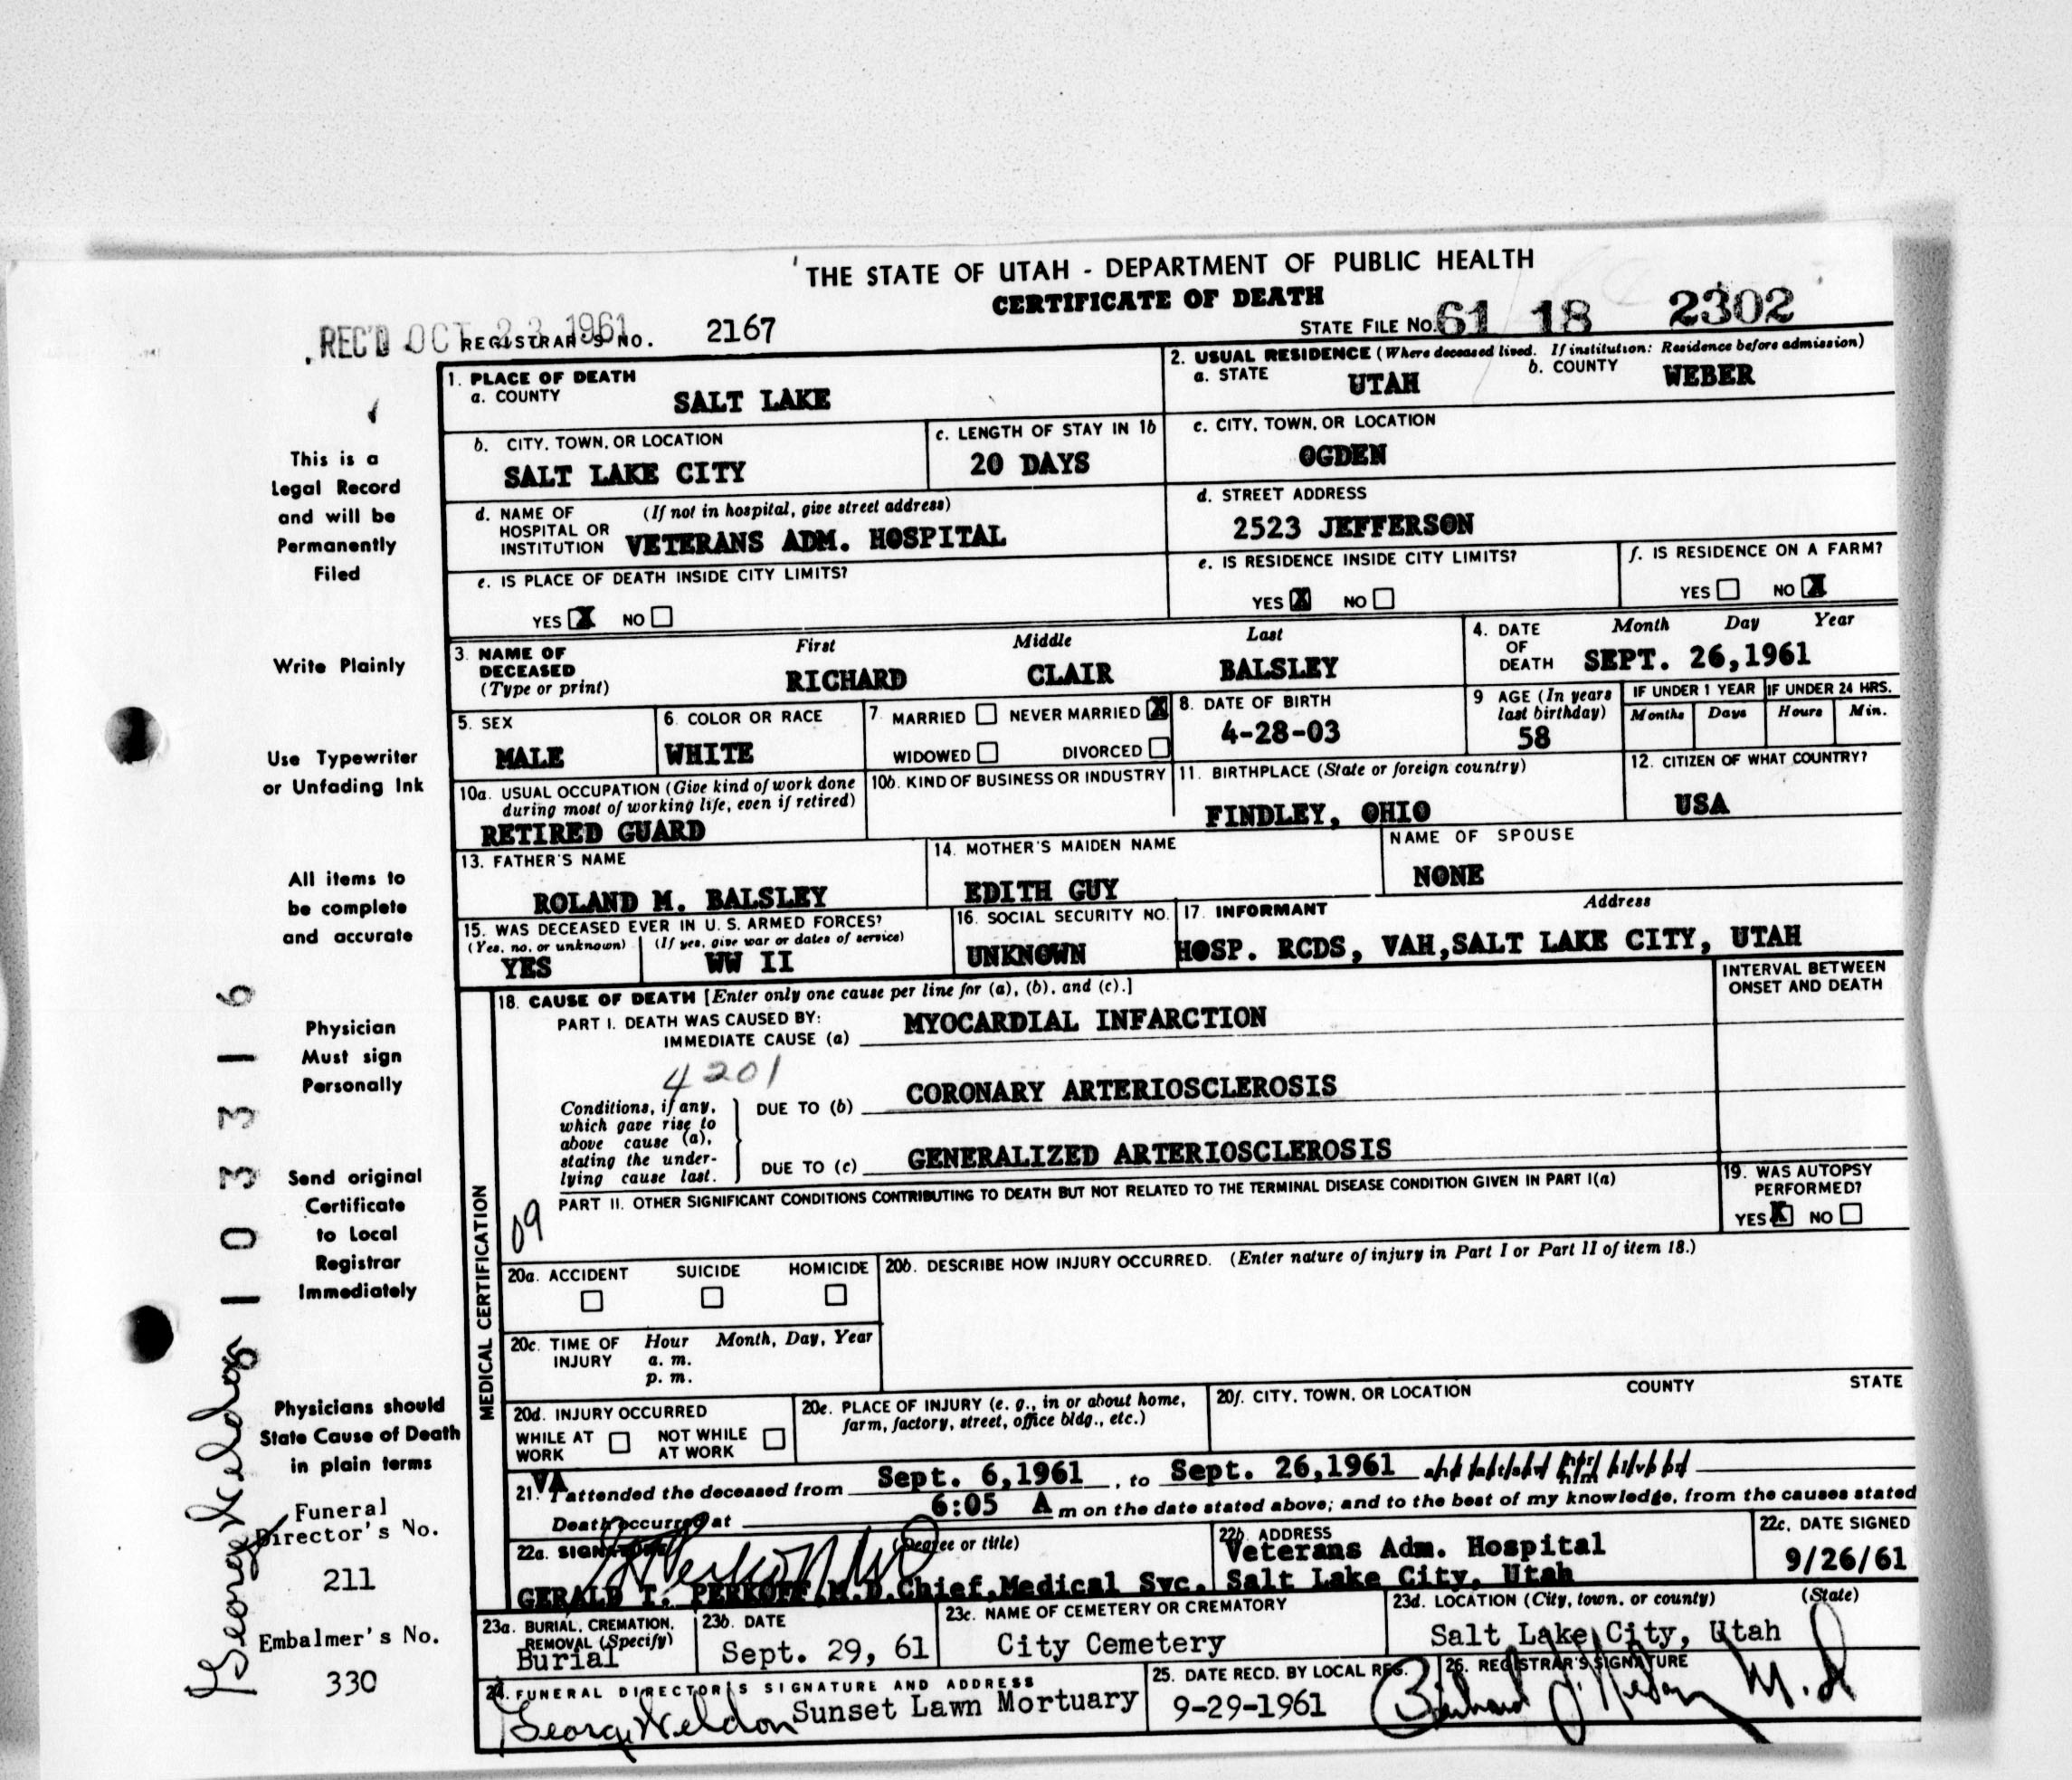 THE STATE OF UTAH - DEPARTMENT OF PUBLIC HEALTH
CERTIFICATE OF DEATH
REC'D OCT 23 1961 REGISTRAR'S NO. 2167
STATE FILE NO. 61 18 2302
This is a
Legal Record
and will be
Permanently
Filed
Write Plainly
Use Typewriter
or Unfading Ink
All items to
be complete
and accurate
Physician
Must sign
Personally
Send original
Certificate
to Local
Registrar
Immediately
Physicians should
State Cause of Death
in plain terms
Funeral
Director's No.
211
Embalmer's No.
330
George Weldon
103316
1. PLACE OF DEATH
a. COUNTY SALT LAKE
2. USUAL RESIDENCE (Where deceased lived. If institution: Residence before admission)
a. STATE UTAH b. COUNTY WEBER
b. CITY, TOWN, OR LOCATION
SALT LAKE CITY
c. LENGTH OF STAY IN 1b
20 DAYS
c. CITY, TOWN, OR LOCATION
OGDEN
d. NAME OF (If not in hospital, give street address)
HOSPITAL OR
INSTITUTION VETERANS ADM. HOSPITAL
d. STREET ADDRESS
2523 JEFFERSON
e. IS PLACE OF DEATH INSIDE CITY LIMITS?
YES X NO
e. IS RESIDENCE INSIDE CITY LIMITS?
YES X NO
f. IS RESIDENCE ON A FARM?
YES NO X
3. NAME OF
DECEASED
(Type or print)
First Middle Last
RICHARD CLAIR BALSLEY
4. DATE
OF
DEATH
Month Day Year
SEPT. 26,1961
5. SEX
MALE
6. COLOR OR RACE
WHITE
7. MARRIED NEVER MARRIED X
WIDOWED DIVORCED
8. DATE OF BIRTH
4-28-03
9 AGE (In years
last birthday)
58
IF UNDER 1 YEAR IF UNDER 24 HRS.
Months Days Hours Min.
10a. USUAL OCCUPATION (Give kind of work done
during most of working life, even if retired)
RETIRED GUARD
10b. KIND OF BUSINESS OR INDUSTRY
11. BIRTHPLACE (State or foreign country)
FINDLEY, OHIO
12. CITIZEN OF WHAT COUNTRY?
USA
13. FATHER'S NAME
ROLAND M. BALSLEY
14. MOTHER'S MAIDEN NAME
EDITH GUY
NAME OF SPOUSE
NONE
15. WAS DECEASED EVER IN U. S. ARMED FORCES?
(Yes, no, or unknown) (If yes, give war or dates of service)
YES WW II
16. SOCIAL SECURITY NO.
UNKNOWN
17. INFORMANT Address
HOSP. RCDS, VAH,SALT LAKE CITY, UTAH
MEDICAL CERTIFICATION
18. CAUSE OF DEATH [Enter only one cause per line for (a), (b), and (c).]
INTERVAL BETWEEN
ONSET AND DEATH
PART I. DEATH WAS CAUSED BY:
IMMEDIATE CAUSE (a) MYOCARDIAL INFARCTION
4201
Conditions, if any,
which gave rise to
above cause (a),
stating the under-
lying cause last.
DUE TO (b) CORONARY ARTERIOSCLEROSIS
DUE TO (c) GENERALIZED ARTERIOSCLEROSIS
PART II. OTHER SIGNIFICANT CONDITIONS CONTRIBUTING TO DEATH BUT NOT RELATED TO THE TERMINAL DISEASE CONDITION GIVEN IN PART I(a)
09
19. WAS AUTOPSY
PERFORMED?
YES X NO
20a. ACCIDENT SUICIDE HOMICIDE
20b. DESCRIBE HOW INJURY OCCURRED. (Enter nature of injury in Part I or Part II of item 18.)
20c. TIME OF Hour Month, Day, Year
INJURY a. m.
p. m.
20d. INJURY OCCURRED
WHILE AT NOT WHILE
WORK AT WORK
20e. PLACE OF INJURY (e. g., in or about home,
farm, factory, street, office bldg., etc.)
20f. CITY, TOWN, OR LOCATION COUNTY STATE
VA
21. I attended the deceased from Sept. 6,1961, to Sept. 26,1961
Death occurred at 6:05 A m on the date stated above; and to the best of my knowledge, from the causes stated
22a. SIGNATURE (Degree or title)
GERALD T. PERKOFF,M.D.Chief,Medical Svc.
22b. ADDRESS
Veterans Adm. Hospital
Salt Lake City, Utah
22c. DATE SIGNED
9/26/61
23a. BURIAL, CREMATION,
REMOVAL (Specify)
Burial
23b. DATE
Sept. 29, 61
23c. NAME OF CEMETERY OR CREMATORY
City Cemetery
23d. LOCATION (City, town, or county) (State)
Salt Lake City, Utah
24. FUNERAL DIRECTOR'S SIGNATURE AND ADDRESS
George Weldon Sunset Lawn Mortuary
25. DATE RECD. BY LOCAL REG.
9-29-1961
26. REGISTRAR'S SIGNATURE